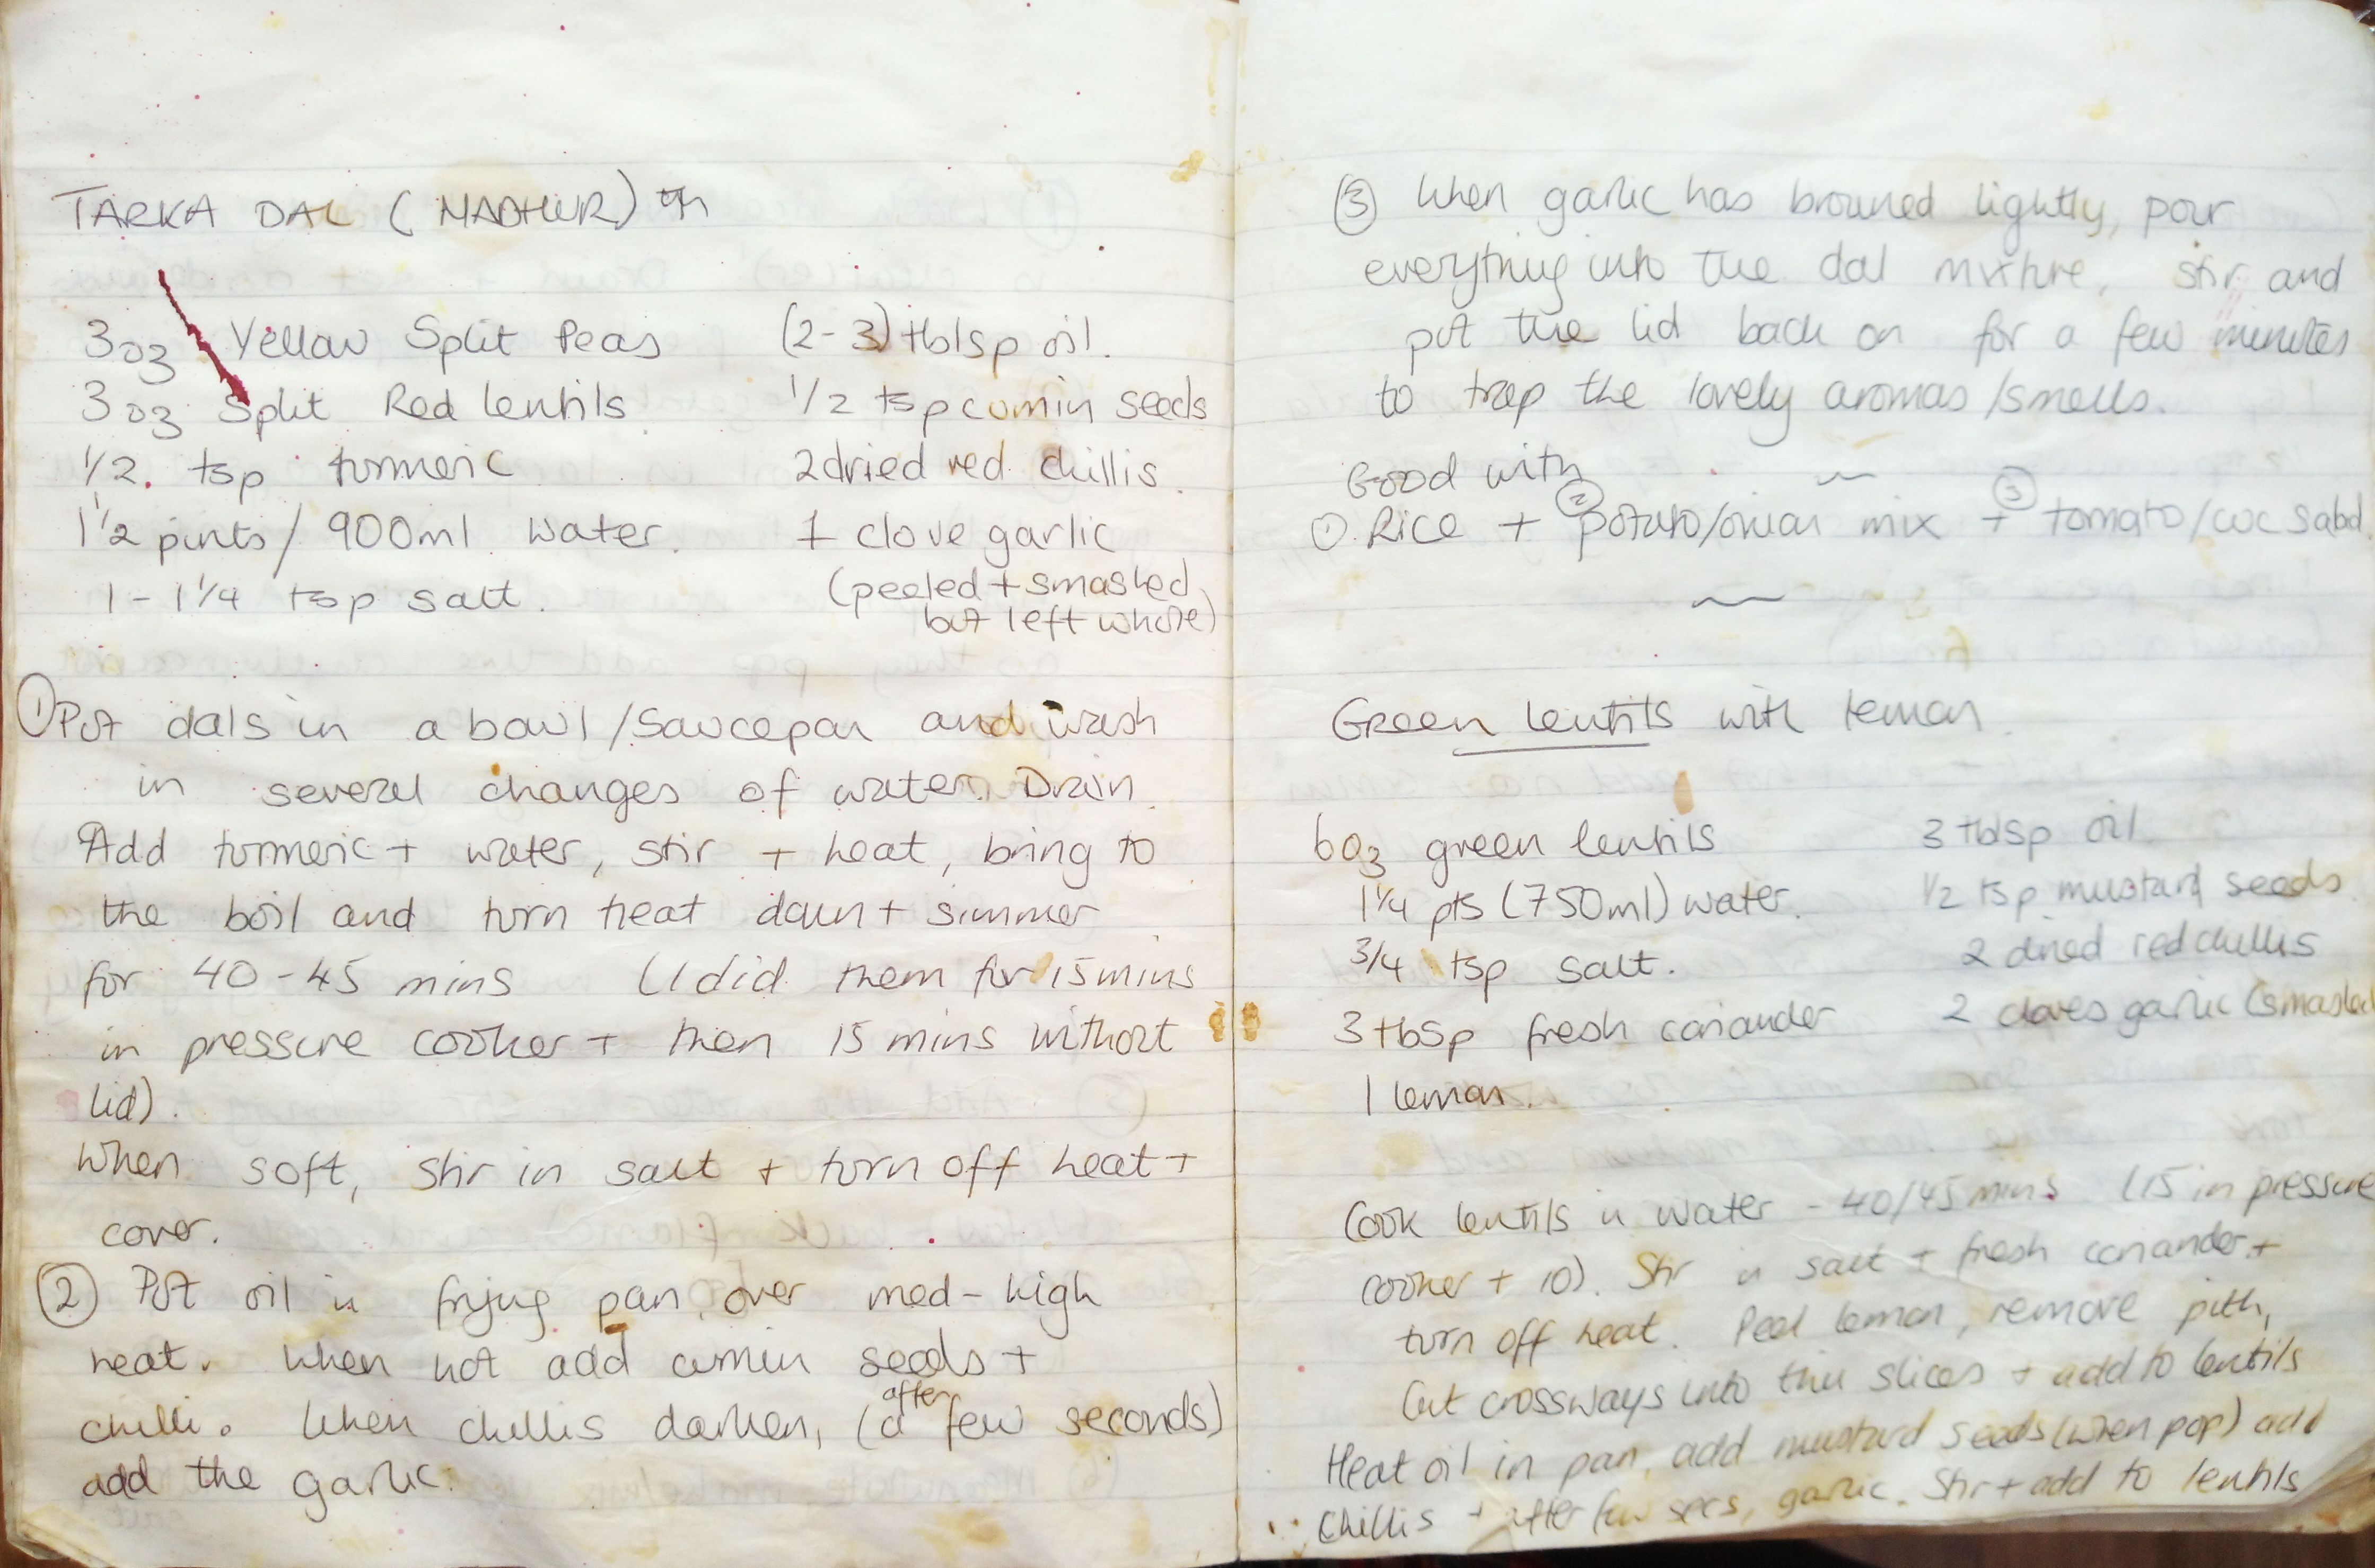 TARKA DAL (MADHUR)
3oz Yellow Split Peas
3oz Split Red lentils
1/2 tsp turmeric
1 1/2 pints / 900ml water.
1 - 1 1/4 tsp salt.
(2-3) tblsp oil.
1/2 tsp cumin seeds
2 dried red chillis.
1 clove garlic
(peeled + smashed
but left whole)
① Put dals in a bowl/saucepan and wash
in several changes of water. Drain.
Add turmeric + water, stir + heat, bring to
the boil and turn heat down + simmer
for 40-45 mins (I did them for 15 mins
in pressure cooker + then 15 mins without
lid).
When soft, stir in salt + turn off heat +
cover.
② Put oil in frying pan over med-high
heat. When hot add cumin seeds +
chilli. When chillis darken, (after a few seconds)
add the garlic.
③ When garlic has browned lightly, pour
everything into the dal mixture, stir and
put the lid back on for a few minutes
to trap the lovely aromas/smells.
Good with
① Rice + ② potato/onion mix + ③ tomato/cuc salad
Green lentils with lemon
6oz green lentils
1 1/4 pts (750ml) water.
3/4 tsp salt.
3 tbsp fresh coriander
1 lemon.
3 tblsp oil
1/2 tsp mustard seeds
2 dried red chillis
2 cloves garlic (smashed
Cook lentils in water - 40/45 mins (15 in pressure
cooker + 10). Stir in salt + fresh coriander +
turn off heat. Peel lemon, remove pith,
Cut crossways into thin slices + add to lentils
Heat oil in pan, add mustard seeds (when pop) add
chillis + after few secs, garlic. Stir + add to lentils